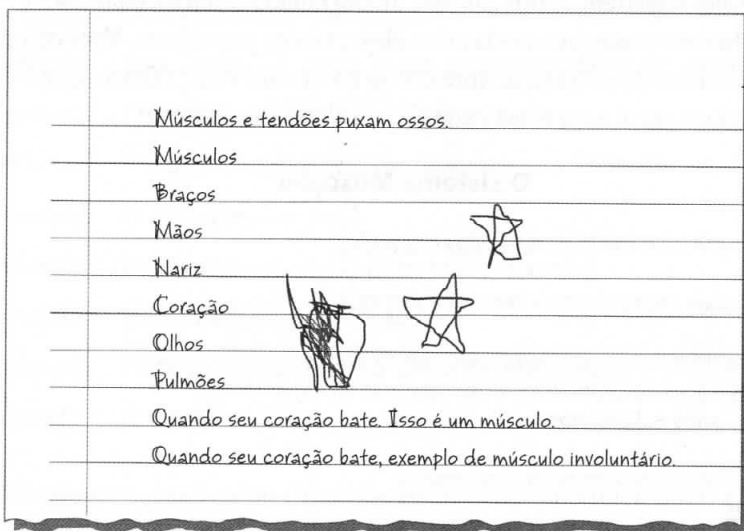 Músculos e tendões puxam ossos.
Músculos
Braços
Mãos
Nariz
Coração
Olhos
Pulmões
Quando seu coração bate. Isso é um músculo.
Quando seu coração bate, exemplo de músculo involuntário.